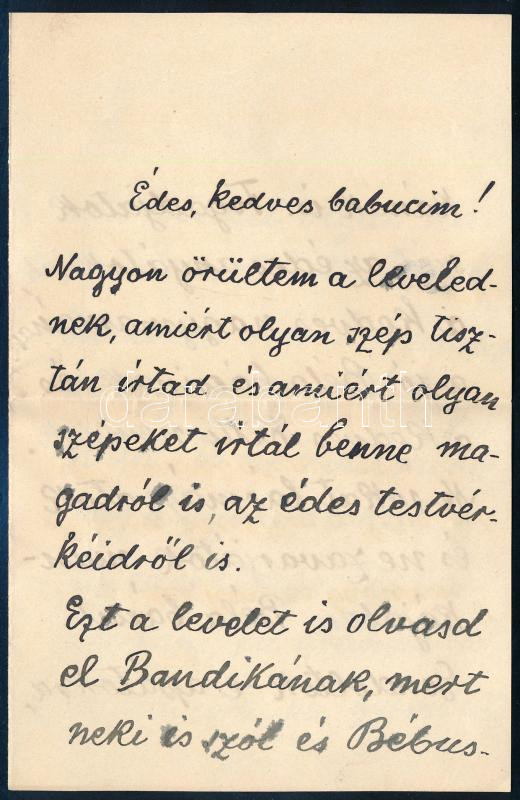 Édes, kedves babucim!
Nagyon örültem a leveled-
nek, amiért olyan szép tisz-
tán írtad és amiért olyan
szépeket írtál benne ma-
gadról is, az édes testvér-
kéidről is.
Ezt a levelet is olvasd
el Bandikának, mert
neki is szól és Bébus-